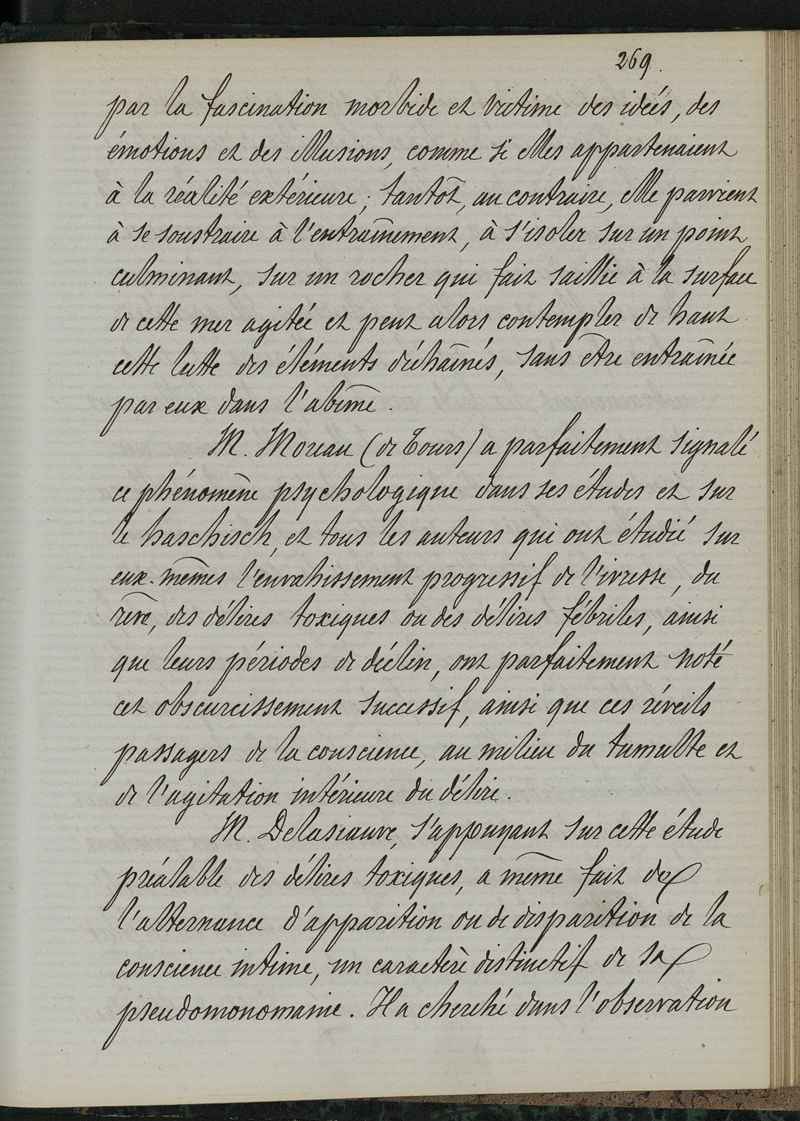 269.
par la fascination morbide et victime des idées, des
émotions et des illusions, comme si elles appartenaient
à la réalité extérieure ; tantôt, au contraire, elle parvient
à se soustraire à l'entraînement, à s'isoler sur un point
culminant, sur un rocher qui fait saillie à la surface
de cette mer agitée et peut alors contempler de haut
cette lutte des éléments déchaînés, sans être entraînée
par eux dans l'abîme.
M. Moreau (de Tours) a parfaitement signalé
ce phénomène psychologique dans ses études et sur
le haschisch, et tous les auteurs qui ont étudié sur
eux-mêmes l'envahissement progressif de l'ivresse, du
rêve, des délires toxiques ou des délires fébriles, ainsi
que leurs périodes de déclin, ont parfaitement noté
cet obscurcissement successif, ainsi que ces réveils
passagers de la conscience, au milieu du tumulte et
de l'agitation intérieure du délire.
M. Delasiauve, s'appuyant sur cette étude
préalable des délires toxiques, a même fait de
l'alternance d'apparition ou de disparition de la
conscience intime, un caractère distinctif de sa
pseudomonomanie. Il a cherché dans l'observation